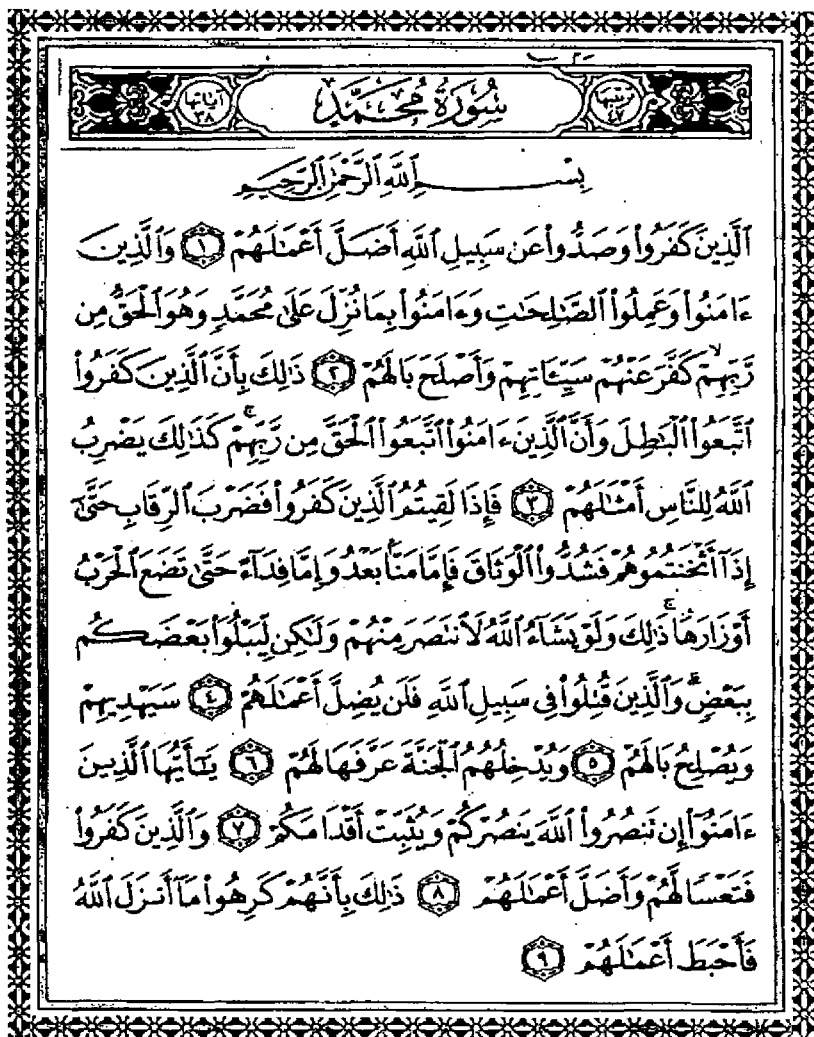 مرتبتها ٤٧ سُورَةُ مُحَمَّدٍ آياتها ٣٨
بِسْمِ ٱللَّهِ ٱلرَّحْمَٰنِ ٱلرَّحِيمِ
ٱلَّذِينَ كَفَرُوا۟ وَصَدُّوا۟ عَن سَبِيلِ ٱللَّهِ أَضَلَّ أَعْمَٰلَهُمْ ١ وَٱلَّذِينَ
ءَامَنُوا۟ وَعَمِلُوا۟ ٱلصَّٰلِحَٰتِ وَءَامَنُوا۟ بِمَا نُزِّلَ عَلَىٰ مُحَمَّدٍ وَهُوَ ٱلْحَقُّ مِن
رَّبِّهِمْ ۙ كَفَّرَ عَنْهُمْ سَيِّـَٔاتِهِمْ وَأَصْلَحَ بَالَهُمْ ٢ ذَٰلِكَ بِأَنَّ ٱلَّذِينَ كَفَرُوا۟
ٱتَّبَعُوا۟ ٱلْبَٰطِلَ وَأَنَّ ٱلَّذِينَ ءَامَنُوا۟ ٱتَّبَعُوا۟ ٱلْحَقَّ مِن رَّبِّهِمْ ۚ كَذَٰلِكَ يَضْرِبُ
ٱللَّهُ لِلنَّاسِ أَمْثَٰلَهُمْ ٣ فَإِذَا لَقِيتُمُ ٱلَّذِينَ كَفَرُوا۟ فَضَرْبَ ٱلرِّقَابِ حَتَّىٰٓ
إِذَآ أَثْخَنتُمُوهُمْ فَشُدُّوا۟ ٱلْوَثَاقَ فَإِمَّا مَنًّۢا بَعْدُ وَإِمَّا فِدَآءً حَتَّىٰ تَضَعَ ٱلْحَرْبُ
أَوْزَارَهَا ۚ ذَٰلِكَ وَلَوْ يَشَآءُ ٱللَّهُ لَٱنتَصَرَ مِنْهُمْ وَلَٰكِن لِّيَبْلُوَا۟ بَعْضَكُم
بِبَعْضٍ ۗ وَٱلَّذِينَ قُتِلُوا۟ فِى سَبِيلِ ٱللَّهِ فَلَن يُضِلَّ أَعْمَٰلَهُمْ ٤ سَيَهْدِيهِمْ
وَيُصْلِحُ بَالَهُمْ ٥ وَيُدْخِلُهُمُ ٱلْجَنَّةَ عَرَّفَهَا لَهُمْ ٦ يَٰٓأَيُّهَا ٱلَّذِينَ
ءَامَنُوٓا۟ إِن تَنصُرُوا۟ ٱللَّهَ يَنصُرْكُمْ وَيُثَبِّتْ أَقْدَامَكُمْ ٧ وَٱلَّذِينَ كَفَرُوا۟
فَتَعْسًا لَّهُمْ وَأَضَلَّ أَعْمَٰلَهُمْ ٨ ذَٰلِكَ بِأَنَّهُمْ كَرِهُوا۟ مَآ أَنزَلَ ٱللَّهُ
فَأَحْبَطَ أَعْمَٰلَهُمْ ٩